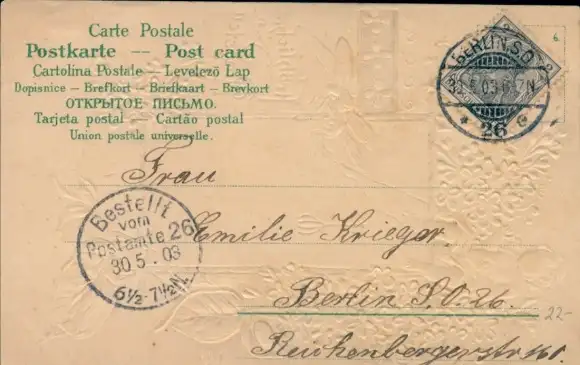 Carte Postale
Postkarte -- Post card
Cartolina Postale – Levelező Lap
Dopisnice – Brefkort – Briefkaart – Brevkort
ОТКРЫТОЕ ПИСЬМО.
Tarjeta postal – Cartão postal
Union postale universelle.
6.
BERLIN, S.O.
26
Frau
Bestellt
vom
Postamte 26
30 5. 03
6½-7½N.
Emilie Krieger.
Berlin S.O. 26.
22-
Reichenbergerstr 161.